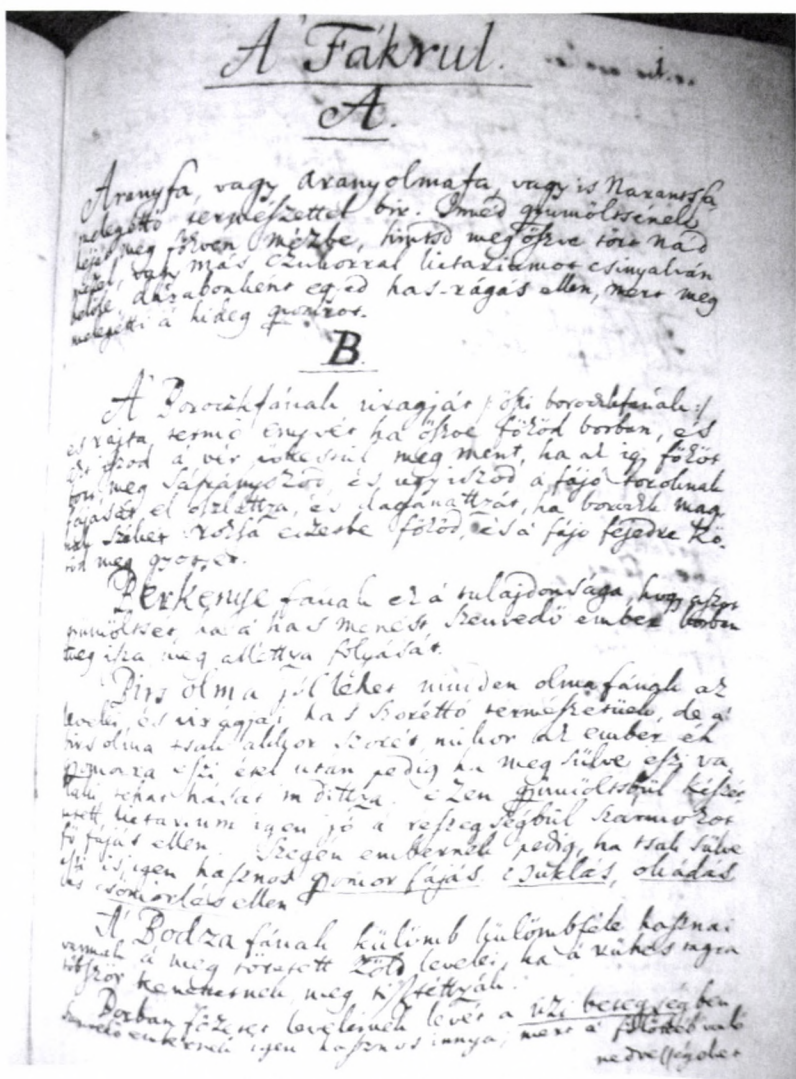 A' Fákrul.
A.
Aranyfa, vagy aranyolmafa, vagy is Narantsfa
melegéttő természettel bir. Ennéd gyümöltsének
héját meg főzven mézbe, hintsd meg öszve tört Nád
mézzel, vagy más czukorral lictariumot csinyalván
belőle darabonként egéd has-rágás ellen, mert meg
melegétti á hideg gyomrot.
B.
A' Borockfának viragját
es rajta termő enyvét ha öszve főzöd borban, és
azt iszod á vér
bort meg Sáfrányozod, és ugy iszod á fájó toroknak
fájását el oszlattya, és daganattyát, ha borock mag-
Rozsa eczetbe főzöd, és á fájó fejedre kö-
töd meg gyogyét.
Berkenye fának ez á tulajdonsága, hogy aszot
gyumöltsét, ha á has menést szenvedő ember borban
meg iszsza, meg aléttya folyását.
Birs olma jól lehet minden olmafának az
levelei, és viragjai has szoréttó természetüek, de á
birsolma tsak akkor szorét, mikor az ember éh
gyomora eszi étel utan pedig ha meg sülve eszi va-
laki tehát hasát indittya. Ezen gyümöltsbül készé-
tett lictarium igen jó á reszegségbül szarmozot
fő fájás ellen. Szegén embernek pedig, ha tsak sülve
eszi is, igen hasznos gyomor fájás, csuklás, okádás
és csömörlés ellen
A' Bodza fának külömb külömbféle hasznai
vannak á meg töretett zöld levelei, ha á rühes tagra
többször kenettetnek, meg tisztéttyák.
Borban főzetet leveleinek levét a vizi betegségben
szenvedő embernek igen hasznos innya, mert a fölöttéb való
nedvességeket